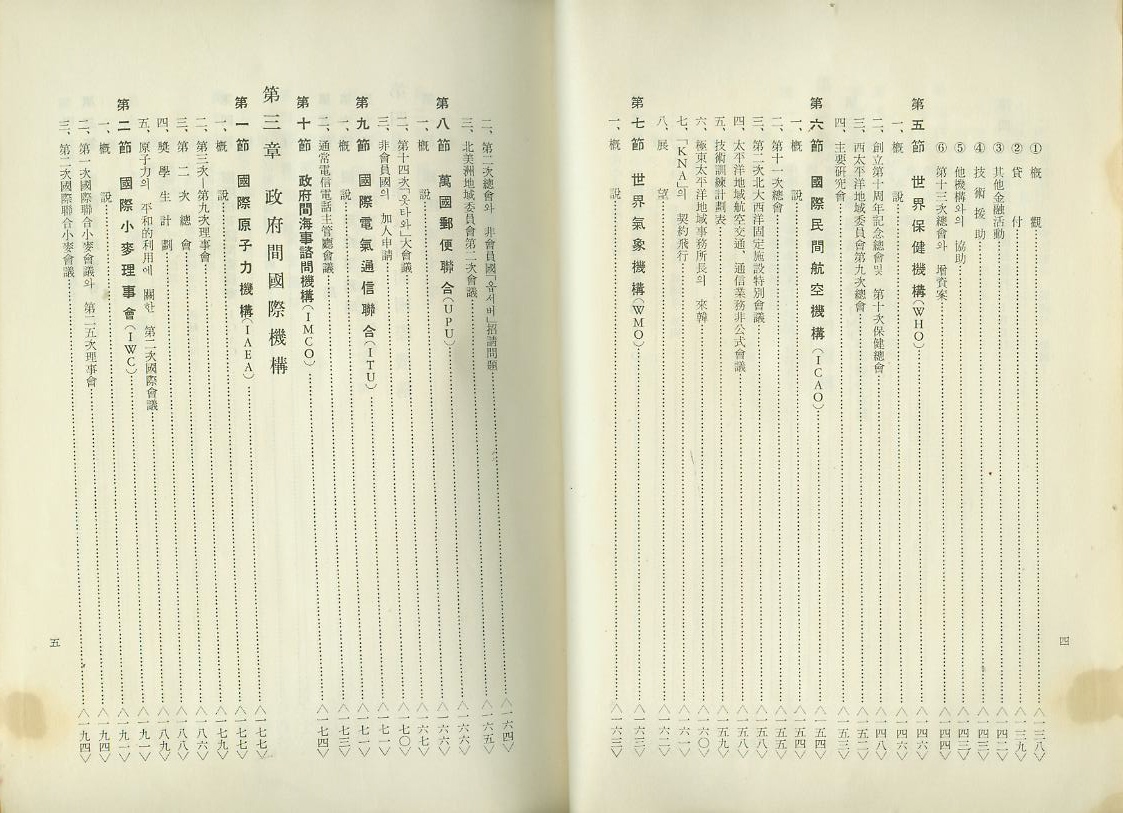 ① 概觀 〈一三八〉
② 貸付 〈一三九〉
③ 其他金融活動 〈一四二〉
④ 技術援助 〈一四三〉
⑤ 他機構와의 協助 〈一四三〉
⑥ 第十三次總會와 增資案 〈一四四〉
第五節 世界保健機構(WHO) 〈一四六〉
一、概說 〈一四六〉
二、創立第十周年記念總會및 第十次保健總會 〈一四八〉
三、西太平洋地域委員會第九次總會 〈一五二〉
四、主要硏究會 〈一五三〉
第六節 國際民間航空機構(ICAO) 〈一五四〉
一、概說 〈一五四〉
二、第十一次總會 〈一五五〉
三、第二次北大西洋固定施設特別會議 〈一五八〉
四、太平洋地域航空交通、通信業務非公式會議 〈一五八〉
五、技術訓練計劃表 〈一五九〉
六、極東太平洋地域事務所長의 來韓 〈一六〇〉
七、「KNA」의 契約飛行 〈一六一〉
八、展望 〈一六二〉
第七節 世界氣象機構(WMO) 〈一六三〉
一、概說 〈一六三〉
四
二、第二次總會와 非會員國「옵서버」招請問題 〈一六四〉
三、北美洲地域委員會第二次會議 〈一六五〉
第八節 萬國郵便聯合(UPU) 〈一六六〉
一、概說 〈一六六〉
二、第十四次「옷타와」大會議 〈一六七〉
三、非會員國의 加入申請 〈一七〇〉
第九節 國際電氣通信聯合(ITU) 〈一七一〉
一、概說 〈一七一〉
二、通常電信電話主管廳會議 〈一七三〉
第十節 政府間海事諮問機構(IMCO) 〈一七四〉
第三章 政府間國際機構
第一節 國際原子力機構(IAEA) 〈一七七〉
一、概說 〈一七七〉
二、第三次—第九次理事會 〈一七九〉
三、第二次總會 〈一八六〉
四、獎學生計劃 〈一八八〉
五、原子力의 平和的利用에 關한 第二次國際會議 〈一八九〉
第二節 國際小麥理事會(IWC) 〈一九一〉
一、概說 〈一九一〉
二、第一次國際聯合小麥會議와 第二五次理事會 〈一九四〉
三、第二次國際聯合小麥會議 〈一九四〉
五